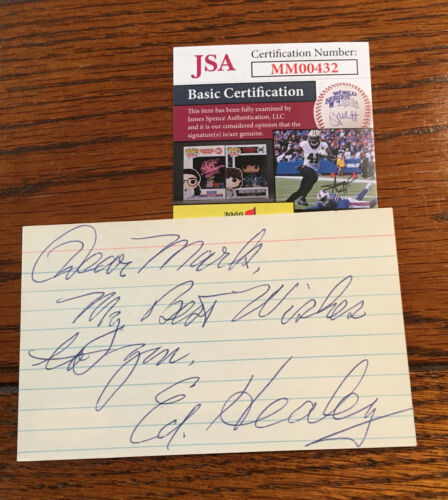 JSA
Certification Number:
MM00432
Basic Certification
This item has been fully examined by
James Spence Authentication, LLC
and it is our considered opinion that the
signature(s) is/are genuine.
WORLD
SERIES
2000
Dear Mark,
My Best Wishes
to you,
Ed. Healey